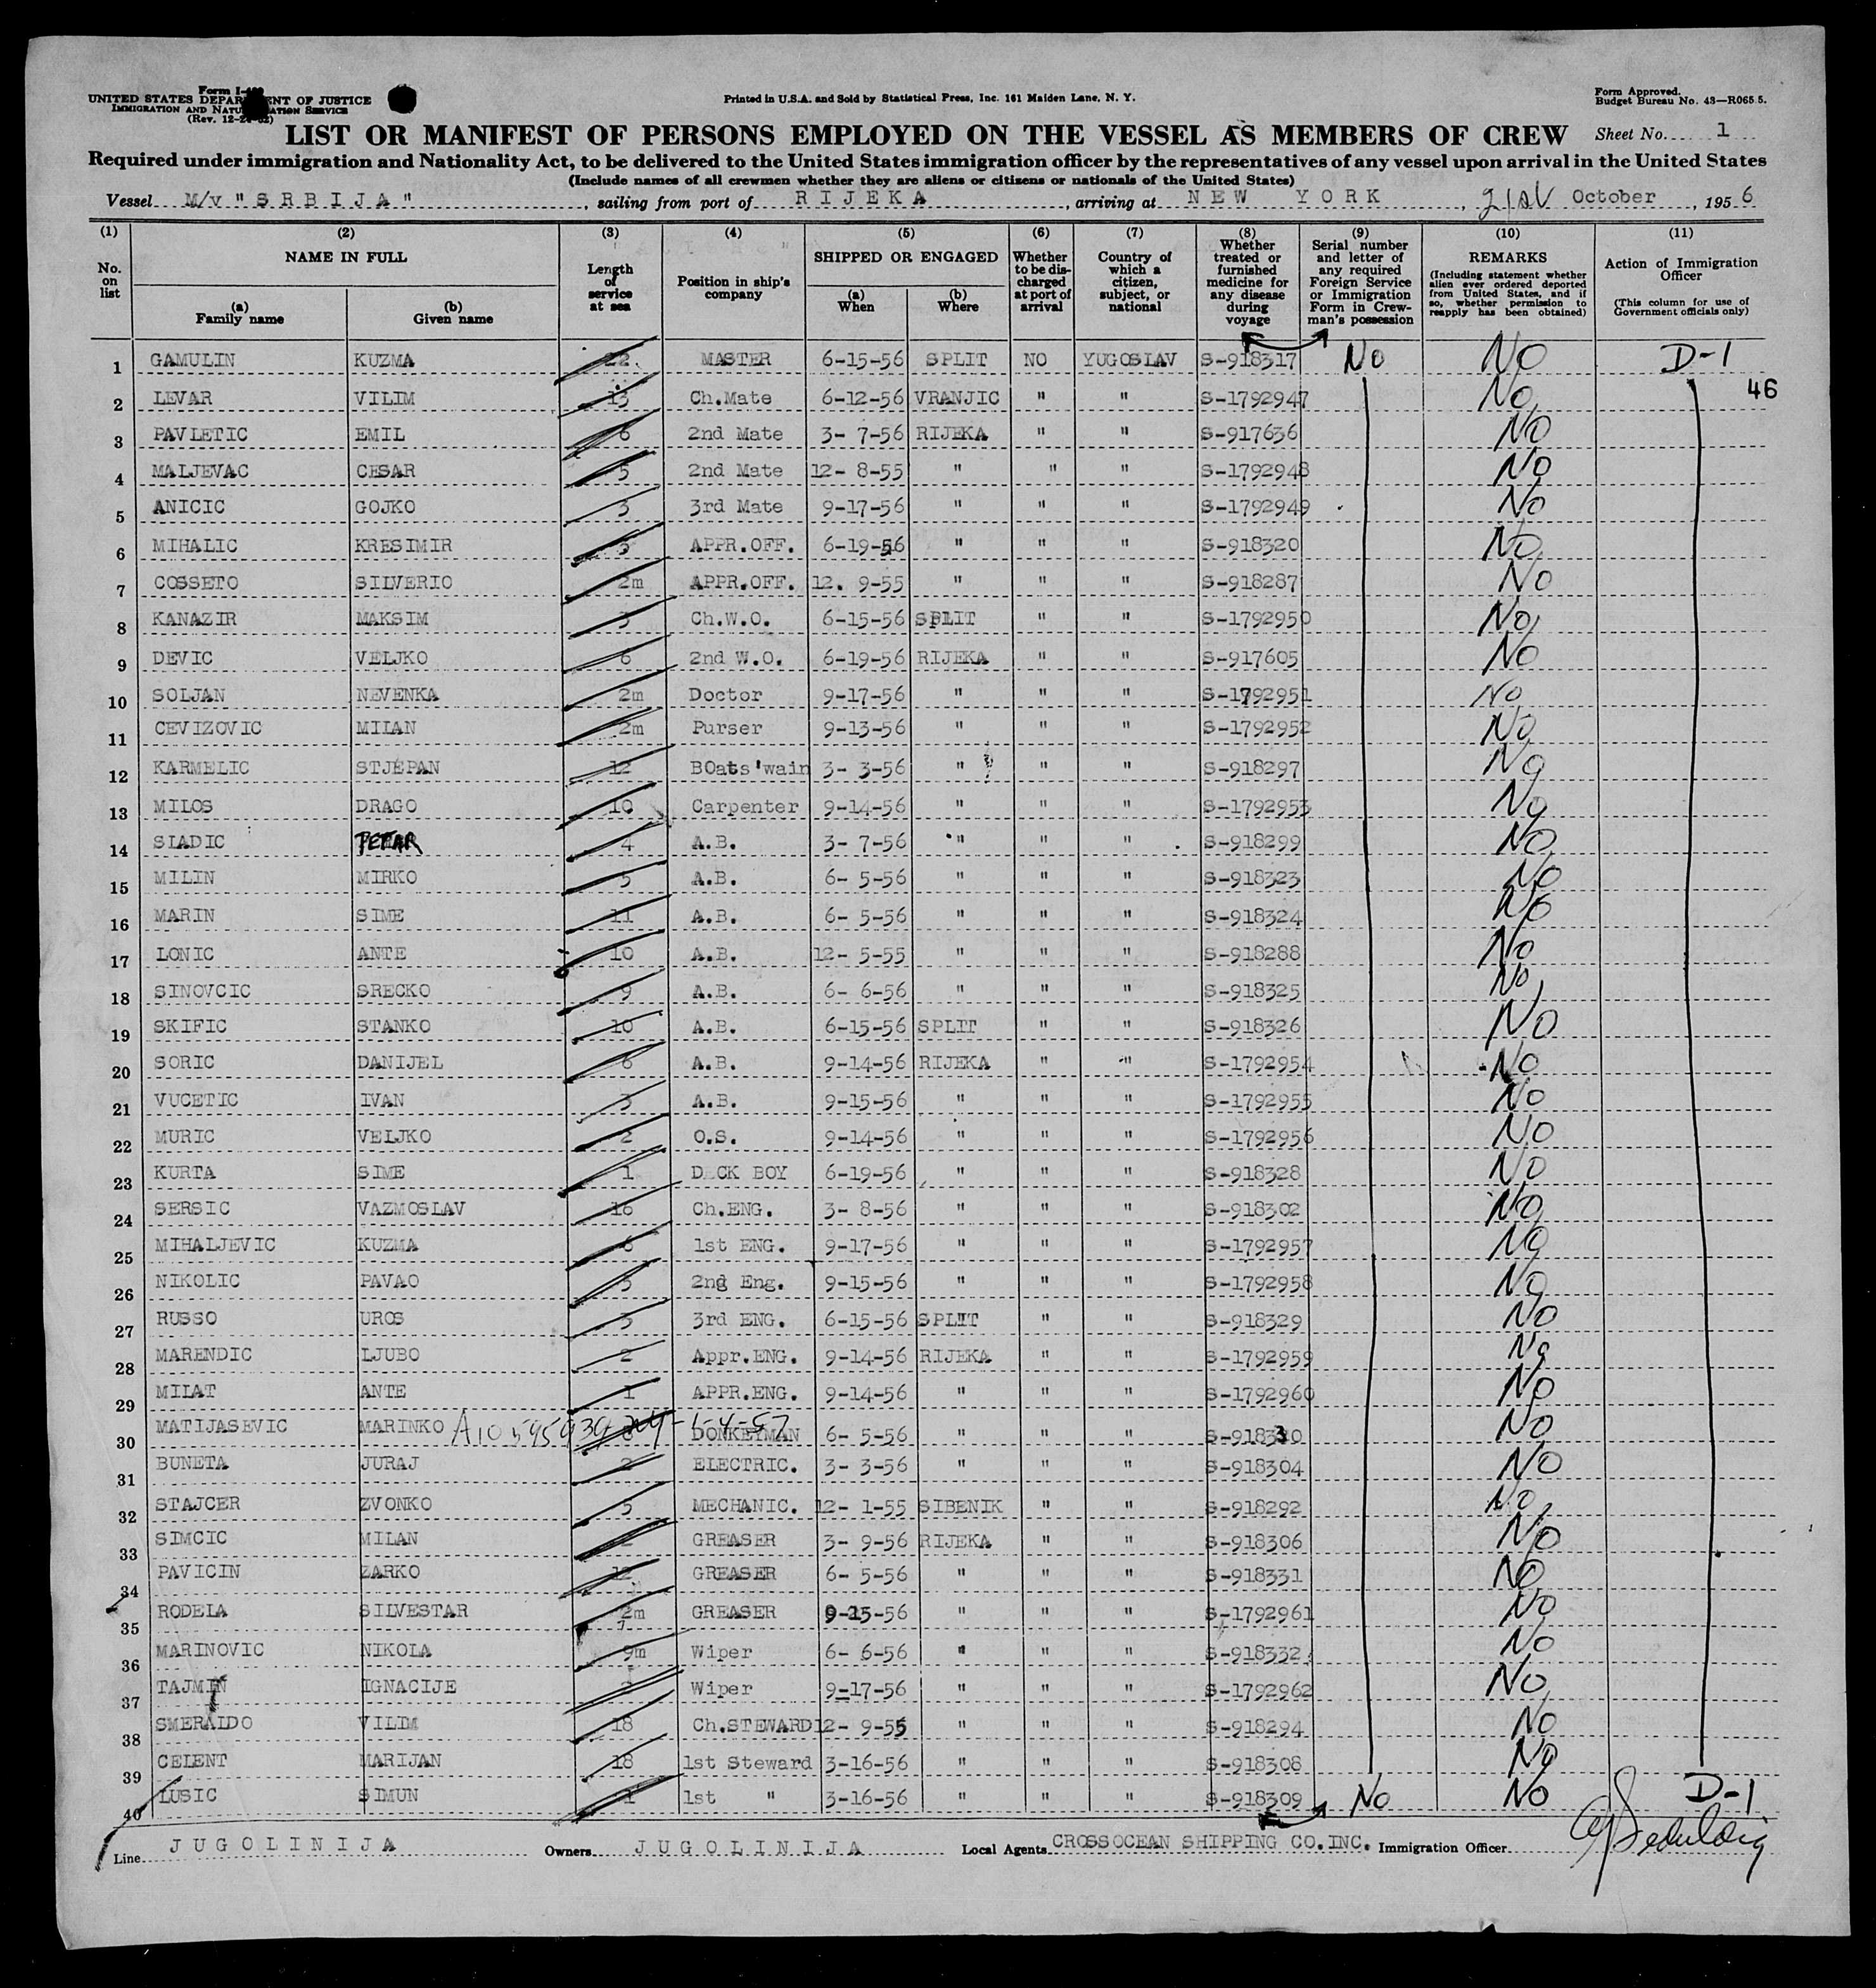 Form I-
UNITED STATES DEPAR ENT OF JUSTICE
IMMIGRATION AND NATU ATION SERVICE
(Rev. 12-2 - 2)
Printed in U.S.A. and Sold by Statistical Press, Inc. 161 Maiden Lane, N. Y.
Form Approved.
Budget Bureau No. 43—R065.5.
LIST OR MANIFEST OF PERSONS EMPLOYED ON THE VESSEL AS MEMBERS OF CREW Sheet No. 1
Required under immigration and Nationality Act, to be delivered to the United States immigration officer by the representatives of any vessel upon arrival in the United States
(Include names of all crewmen whether they are aliens or citizens or nationals of the United States)
Vessel M/v "SRBIJA", sailing from port of RIJEKA, arriving at NEW YORK, 21st October, 1956
(1) No. on list
(2) NAME IN FULL (a) Family name (b) Given name
(3) Length of service at sea
(4) Position in ship's company
(5) SHIPPED OR ENGAGED (a) When (b) Where
(6) Whether to be discharged at port of arrival
(7) Country of which a citizen, subject, or national
(8) Whether treated or furnished medicine for any disease during voyage
(9) Serial number and letter of any required Foreign Service or Immigration Form in Crewman's possession
(10) REMARKS (Including statement whether alien ever ordered deported from United States, and if so, whether permission to reapply has been obtained)
(11) Action of Immigration Officer (This column for use of Government officials only)
1 GAMULIN KUZMA 22 MASTER 6-15-56 SPLIT NO YUGOSLAV S-918317 No No D-1
46
2 LEVAR VILIM 13 Ch.Mate 6-12-56 VRANJIC " " S-1792947 No
3 PAVLETIC EMIL 6 2nd Mate 3- 7-56 RIJEKA " " S-917636 No
4 MALJEVAC CESAR 5 2nd Mate 12- 8-55 " " " S-1792948 No
5 ANICIC GOJKO 3 3rd Mate 9-17-56 " " " S-1792949 No
6 MIHALIC KRESIMIR 3 APPR.OFF. 6-19-56 " " " S-918320 No
7 COSSETO SILVERIO 2m APPR.OFF. 12. 9-55 " " " S-918287 No
8 KANAZIR MAKSIM 3 Ch.W.O. 6-15-56 SPLIT " " S-1792950 No
9 DEVIC VELJKO 6 2nd W.O. 6-19-56 RIJEKA " " S-917605 No
10 SOLJAN NEVENKA 2m Doctor 9-17-56 " " " S-1792951 No
11 CEVIZOVIC MILAN 2m Purser 9-13-56 " " " S-1792952 No
12 KARMELIC STJEPAN 12 BOats'wain 3- 3-56 " " " S-918297 No
13 MILOS DRAGO 10 Carpenter 9-14-56 " " " S-1792953 No
14 SLADIC PETAR 4 A.B. 3- 7-56 " " " S-918299 No
15 MILIN MIRKO 5 A.B. 6- 5-56 " " " S-918323 No
16 MARIN SIME 11 A.B. 6- 5-56 " " " S-918324 No
17 LONIC ANTE 10 A.B. 12- 5-55 " " " S-918288 No
18 SINOVCIC SRECKO 9 A.B. 6- 6-56 " " " S-918325 No
19 SKIFIC STANKO 10 A.B. 6-15-56 SPLIT " " S-918326 No
20 SORIC DANIJEL 6 A.B. 9-14-56 RIJEKA " " S-1792954 No
21 VUCETIC IVAN 3 A.B. 9-15-56 " " " S-1792955 No
22 MURIC VELJKO 2 O.S. 9-14-56 " " " S-1792956 No
23 KURTA SIME 1 DECK BOY 6-19-56 " " " S-918328 No
24 SERSIC VAZMOSLAV 16 Ch.ENG. 3- 8-56 " " " S-918302 No
25 MIHALJEVIC KUZMA 6 1st ENG. 9-17-56 " " " S-1792957 No
26 NIKOLIC PAVAO 5 2nd Eng. 9-15-56 " " " S-1792958 No
27 RUSSO UROS 3 3rd ENG. 6-15-56 SPLIT " " S-918329 No
28 MARENDIC LJUBO 2 Appr.ENG. 9-14-56 RIJEKA " " S-1792959 No
29 MILAT ANTE 1 APPR.ENG. 9-14-56 " " " S-1792960 No
30 MATIJASEVIC MARINKO A10595930 1-4-57 DONKEYMAN 6- 5-56 " " " S-918330 No
31 BUNETA JURAJ 2 ELECTRIC. 3- 3-56 " " " S-918304 No
32 STAJCER ZVONKO 5 MECHANIC. 12- 1-55 SIBENIK " " S-918292 No
33 SIMCIC MILAN GREASER 3- 9-56 RIJEKA " " S-918306 No
34 PAVICIN ZARKO 12 GREASER 6- 5-56 " " " S-918331 No
35 RODELA SILVESTAR 2m GREASER 9-15-56 " " " S-1792961 No
36 MARINOVIC NIKOLA 9m Wiper 6- 6-56 " " " S-918332 No
37 TAJMIN IGNACIJE Wiper 9-17-56 " " " S-1792962 No
38 SMERALDO VILIM 18 Ch.STEWARD 12- 9-55 " " " S-918294 No
39 CELENT MARIJAN 18 1st Steward 3-16-56 " " " S-918308 No
40 LUSIC SIMUN 1 1st " 3-16-56 " " " S-918309 No No D-1
Line JUGOLINIJA Owners JUGOLINIJA Local Agents CROSSOCEAN SHIPPING CO.INC. Immigration Officer